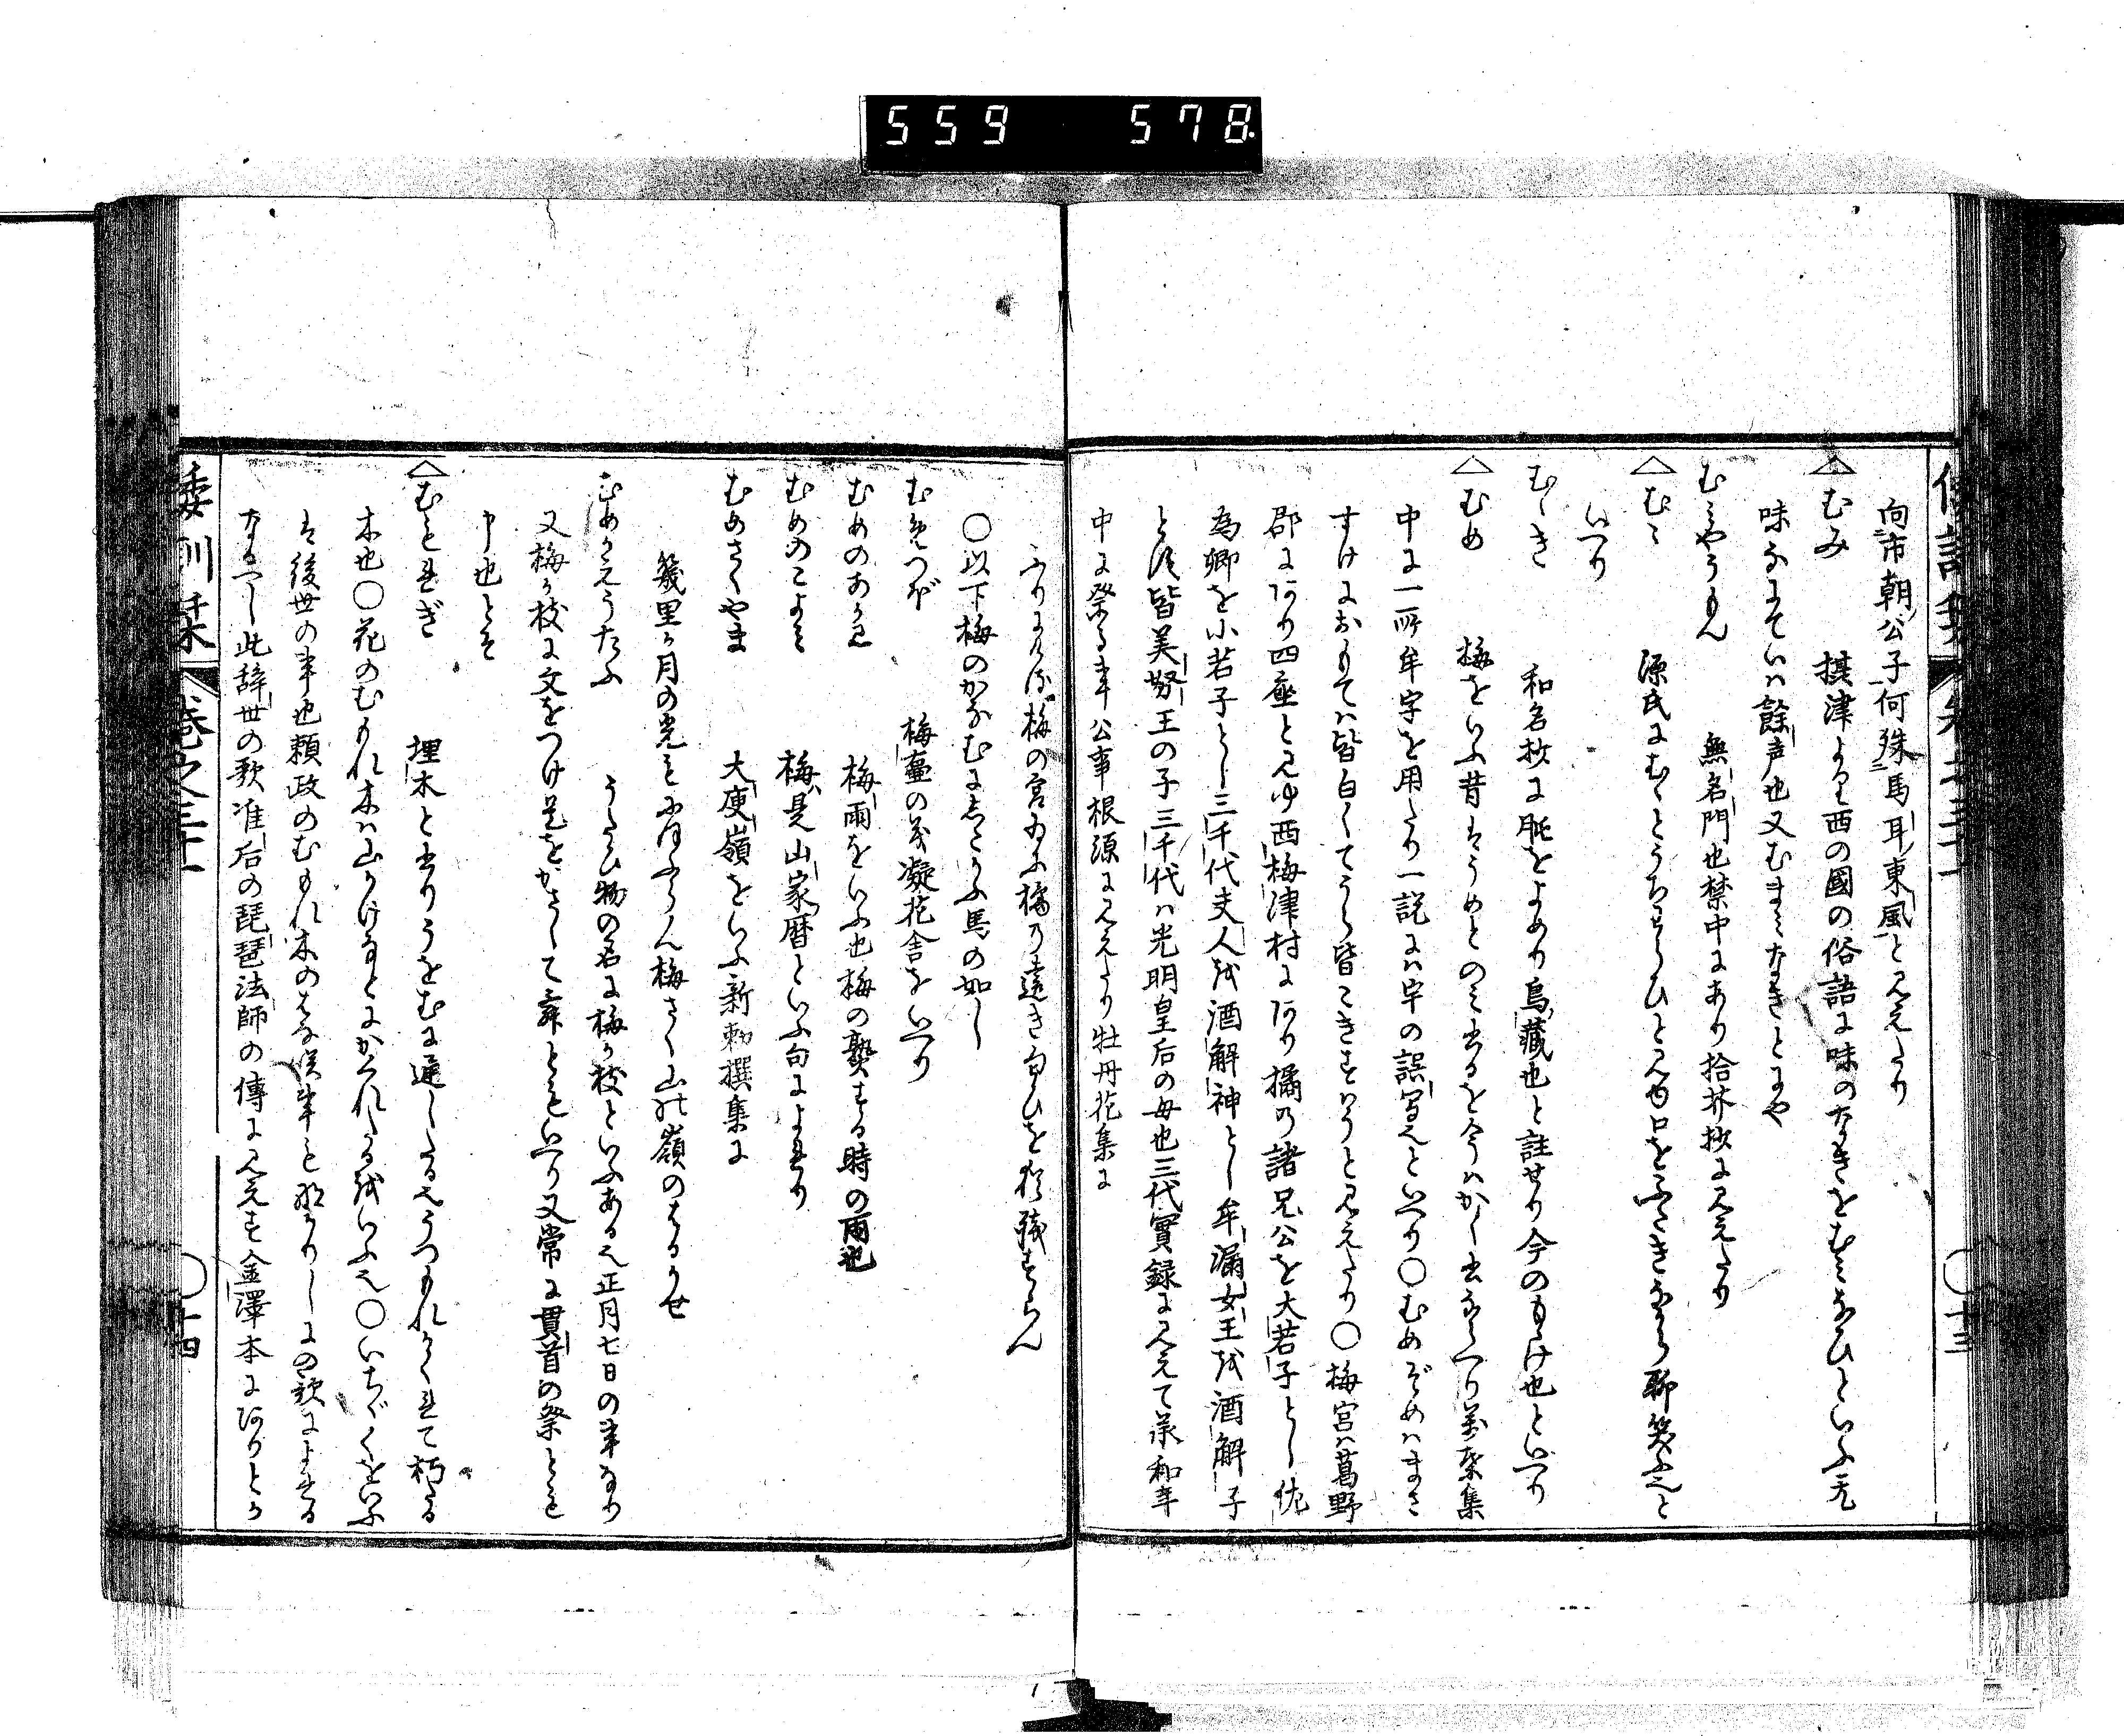 559 578
向市朝公子何殊馬耳東風と見えたり
△むみ 摂津より西の國の俗語に味のなきをむみなひといふ无
味なるをいへは餘声也又むまみなきとにや
むみやうもん 無名門也禁中にあり拾芥抄に見えたり
△むむ 源氏にむむとうちわらひと見ゆ口をふたきなから聊笑ふ也と
いへり
むむき 和名抄に脡をよめり烏藏也と註せり今のもゝけ也といへり
△むめ 梅をいふ昔はうめとのみ書るを今はかく書ならへり萬葉集
中に一所牟字を用たり一説には宇の誤写也といへり○むめぞめはまさ
すけにおもては皆白くてうら皆こきすはうと見えたり○梅宮は葛野
郡にあり四座と見ゆ西梅津村にあり橘の諸兄公を大若子とし佐
為卿を小若子とし三千代夫人を酒解神とし牟漏女王を酒解子
とす皆美努王の子三千代は光明皇后の母也三代實録に見えて承和年
中に祭る事公事根源に見えたり牡丹花集に
ふりにける梅の宮ゐに橘の遠き匂ひを猶残すらん
○以下梅のかなむにしたかふ馬の如し
むめつぼ 梅壷の義凝花舎をいへり
むめのあめ 梅雨をいふ也梅の熟する時の雨也
むめのこよみ 梅是山家暦といふ句によれり
むめさくやま 大庾嶺をいふ新勅撰集に
幾里か月の光もにほふらん梅さく山の嶺のはるかせ
むめかえうたふ うたひ物の名に梅か枝といふある也正月七日の事なり
又梅か枝に文をつけ是をかさして舞ともいへり又常に貫首の祭とも
申也とそ
△むもれぎ 埋木と書りうをむに通したる也うつもれかくれて朽たる
木也○花のむもれ木は山かけなとにかくれたるをいふ也○いちゞくをいふ
は後世の事也頼政のむもれ木のはな咲事も那かりしにの歌によれる
なるへし此辞世の歌准后の琵琶法師の傳に見えす金澤本にありとか
倭訓栞 巻之三十一 ○十四